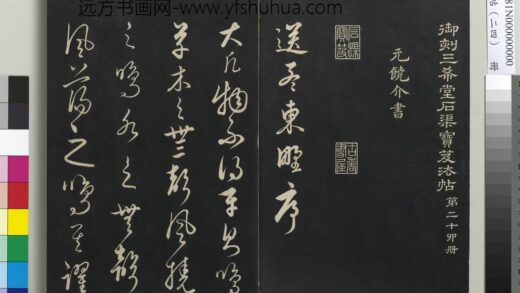 远方书画网-www.yfshuhua.com
81N000000000
帖（二四）
御刻三希堂石渠寶笈法帖 第二十四冊
元饒介書
石渠寶笈
送孟東野序
大凡物不得平則鳴
草木之無聲風撓
之鳴水之無聲
風蕩之鳴其躍